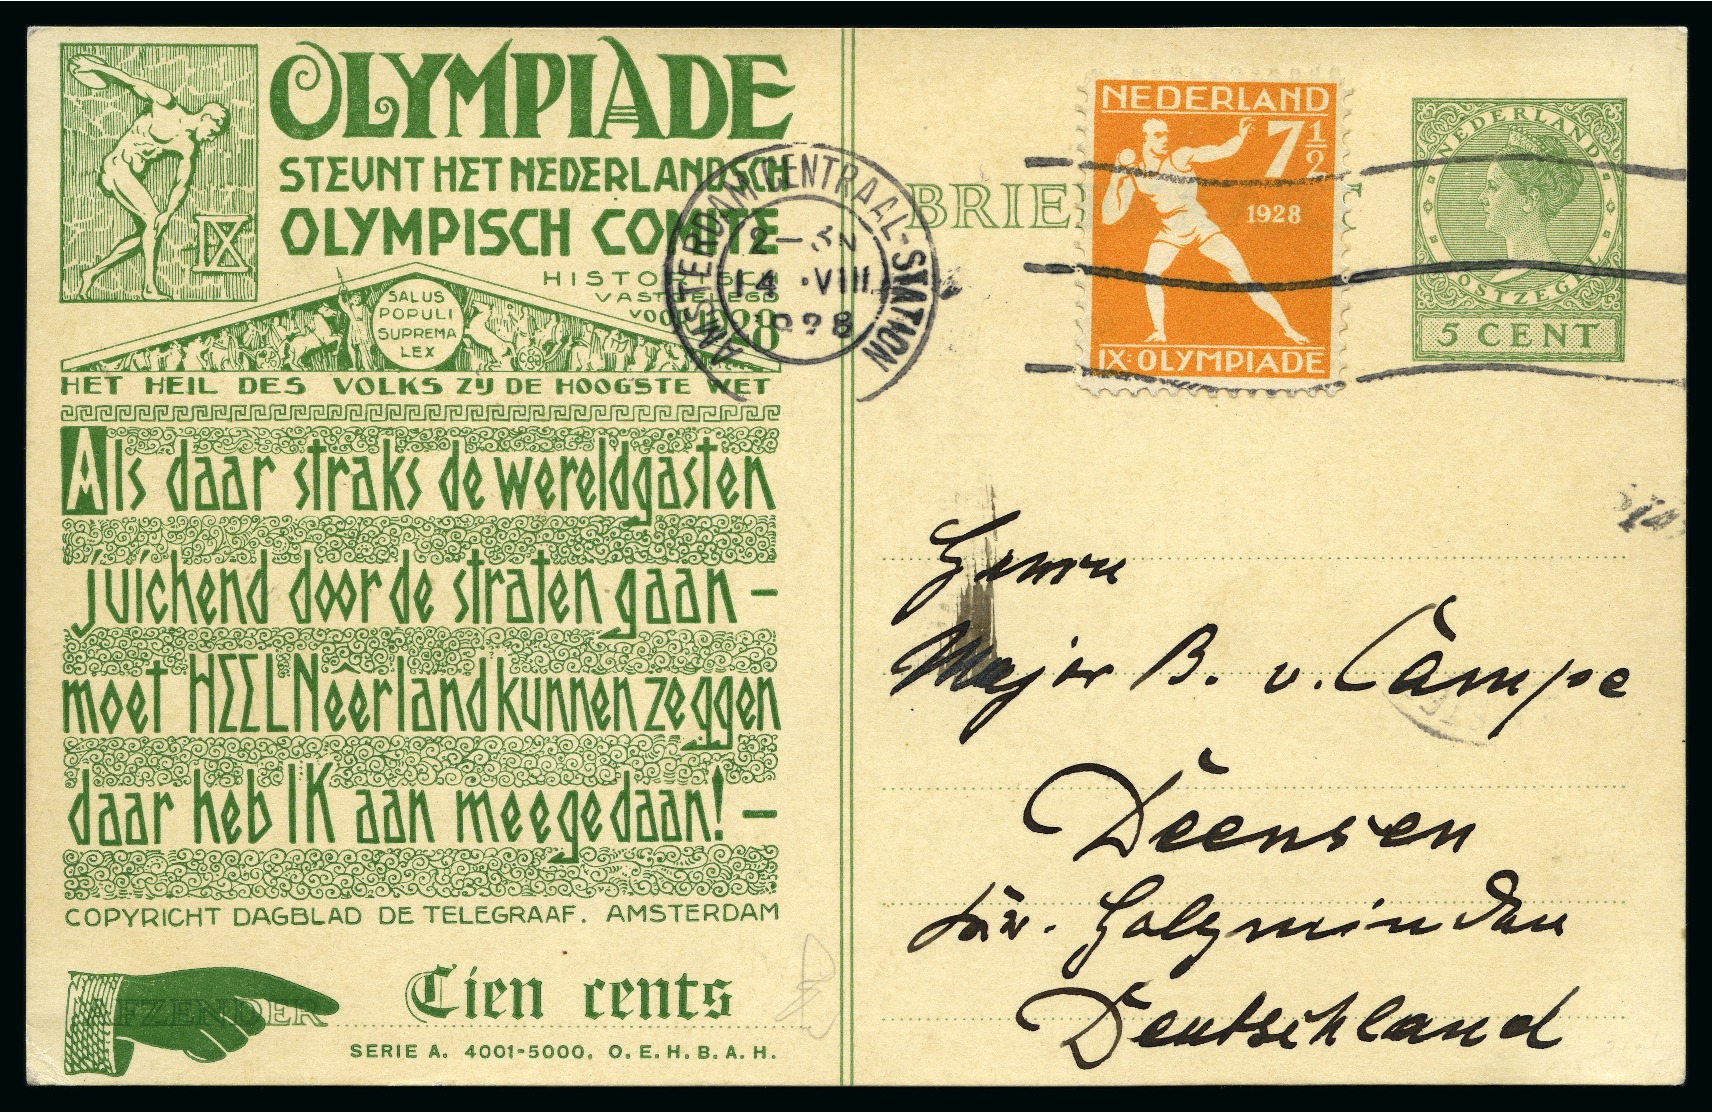 OLYMPIADE
STEUNT HET NEDERLANDSCH
OLYMPISCH COMITE
HISTORISCH
VASTGELEGD
VOOR 1928
IX
SALUS
POPULI
SUPREMA
LEX
HET HEIL DES VOLKS ZIJ DE HOOGSTE WET
Als daar straks de wereldgasten
juichend door de straten gaan –
moet HEEL Neêrland kunnen zeggen
daar heb IK aan meegedaan! –
COPYRICHT DAGBLAD DE TELEGRAAF. AMSTERDAM
AFZENDER
Tien cents
SERIE A. 4001-5000. O.E.H.B.A.H.
AMSTERDAM CENTRAAL-STATION
14 ·VIII
1928
BRIE
NEDERLAND
7 1/2
1928
IX: OLYMPIADE
NEDERLAND
POSTZEGEL
5 CENT
Herrn
Major B. v. Campe
Deensen
Holzminden
Deutschland